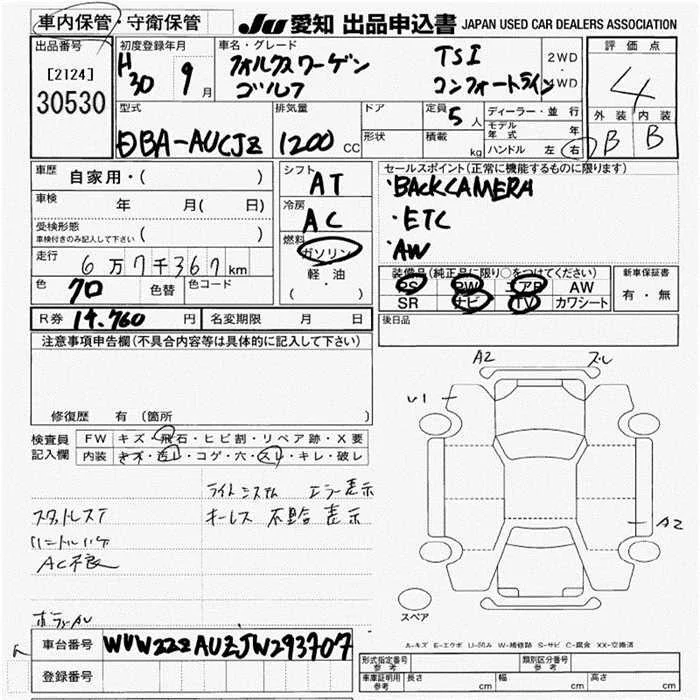 車内保管・守衛保管
JU 愛知 出品申込書 JAPAN USED CAR DEALERS ASSOCIATION
出品番号
[2124]
30530
初度登録年月
H30 9月
車名・グレード
フォルクスワーゲン
ゴルフ
TSI
コンフォートライン
2WD
・
4WD
評価点
4
外装 内装
B B
型式
DBA-AUCJZ
排気量
1200 CC
ドア
形状
定員 5 人
積載 kg
ディーラー・並行
モデル年式 年
ハンドル 左 右
車歴 自家用・( )
車検 年 月( 日)
受検形態
車検付きのみ記入して下さい ( )
走行 6万7千367km
色 クロ 色替 色コード
シフト AT
冷房 AC
燃料
ガソリン
軽油
( ・ )
セールスポイント(正常に機能するものに限ります)
・BACKCAMERA
・ETC
・AW
装備品(純正品に限り○をつけてください)
PS PW エアB AW
SR ナビ TV カワシート
新車保証書
有・無
R券 14.760 円 名変期限 月 日
後日品
注意事項申告欄(不具合内容等は具体的に記入して下さい)
修復歴 有(箇所 )
検査員記入欄
FW キズ・飛石・ヒビ割・リペア跡・X要
内装 キズ・汚レ・コゲ・穴・スレ・キレ・破レ
ライトシステム エラー表示
スタットレス7 キーレス 不具合 表示
AC不良
A2 スレ
U1
A2
スペア
A-キズ E-エクボ U-凹み W-補修跡 S-サビ C-腐食 XX-交換済
車台番号 WVWZZZAUZJW293707
登録番号
形式指定番号参考 類別区分番号参考
車庫証明用参考 長さ cm 幅 cm 高さ cm